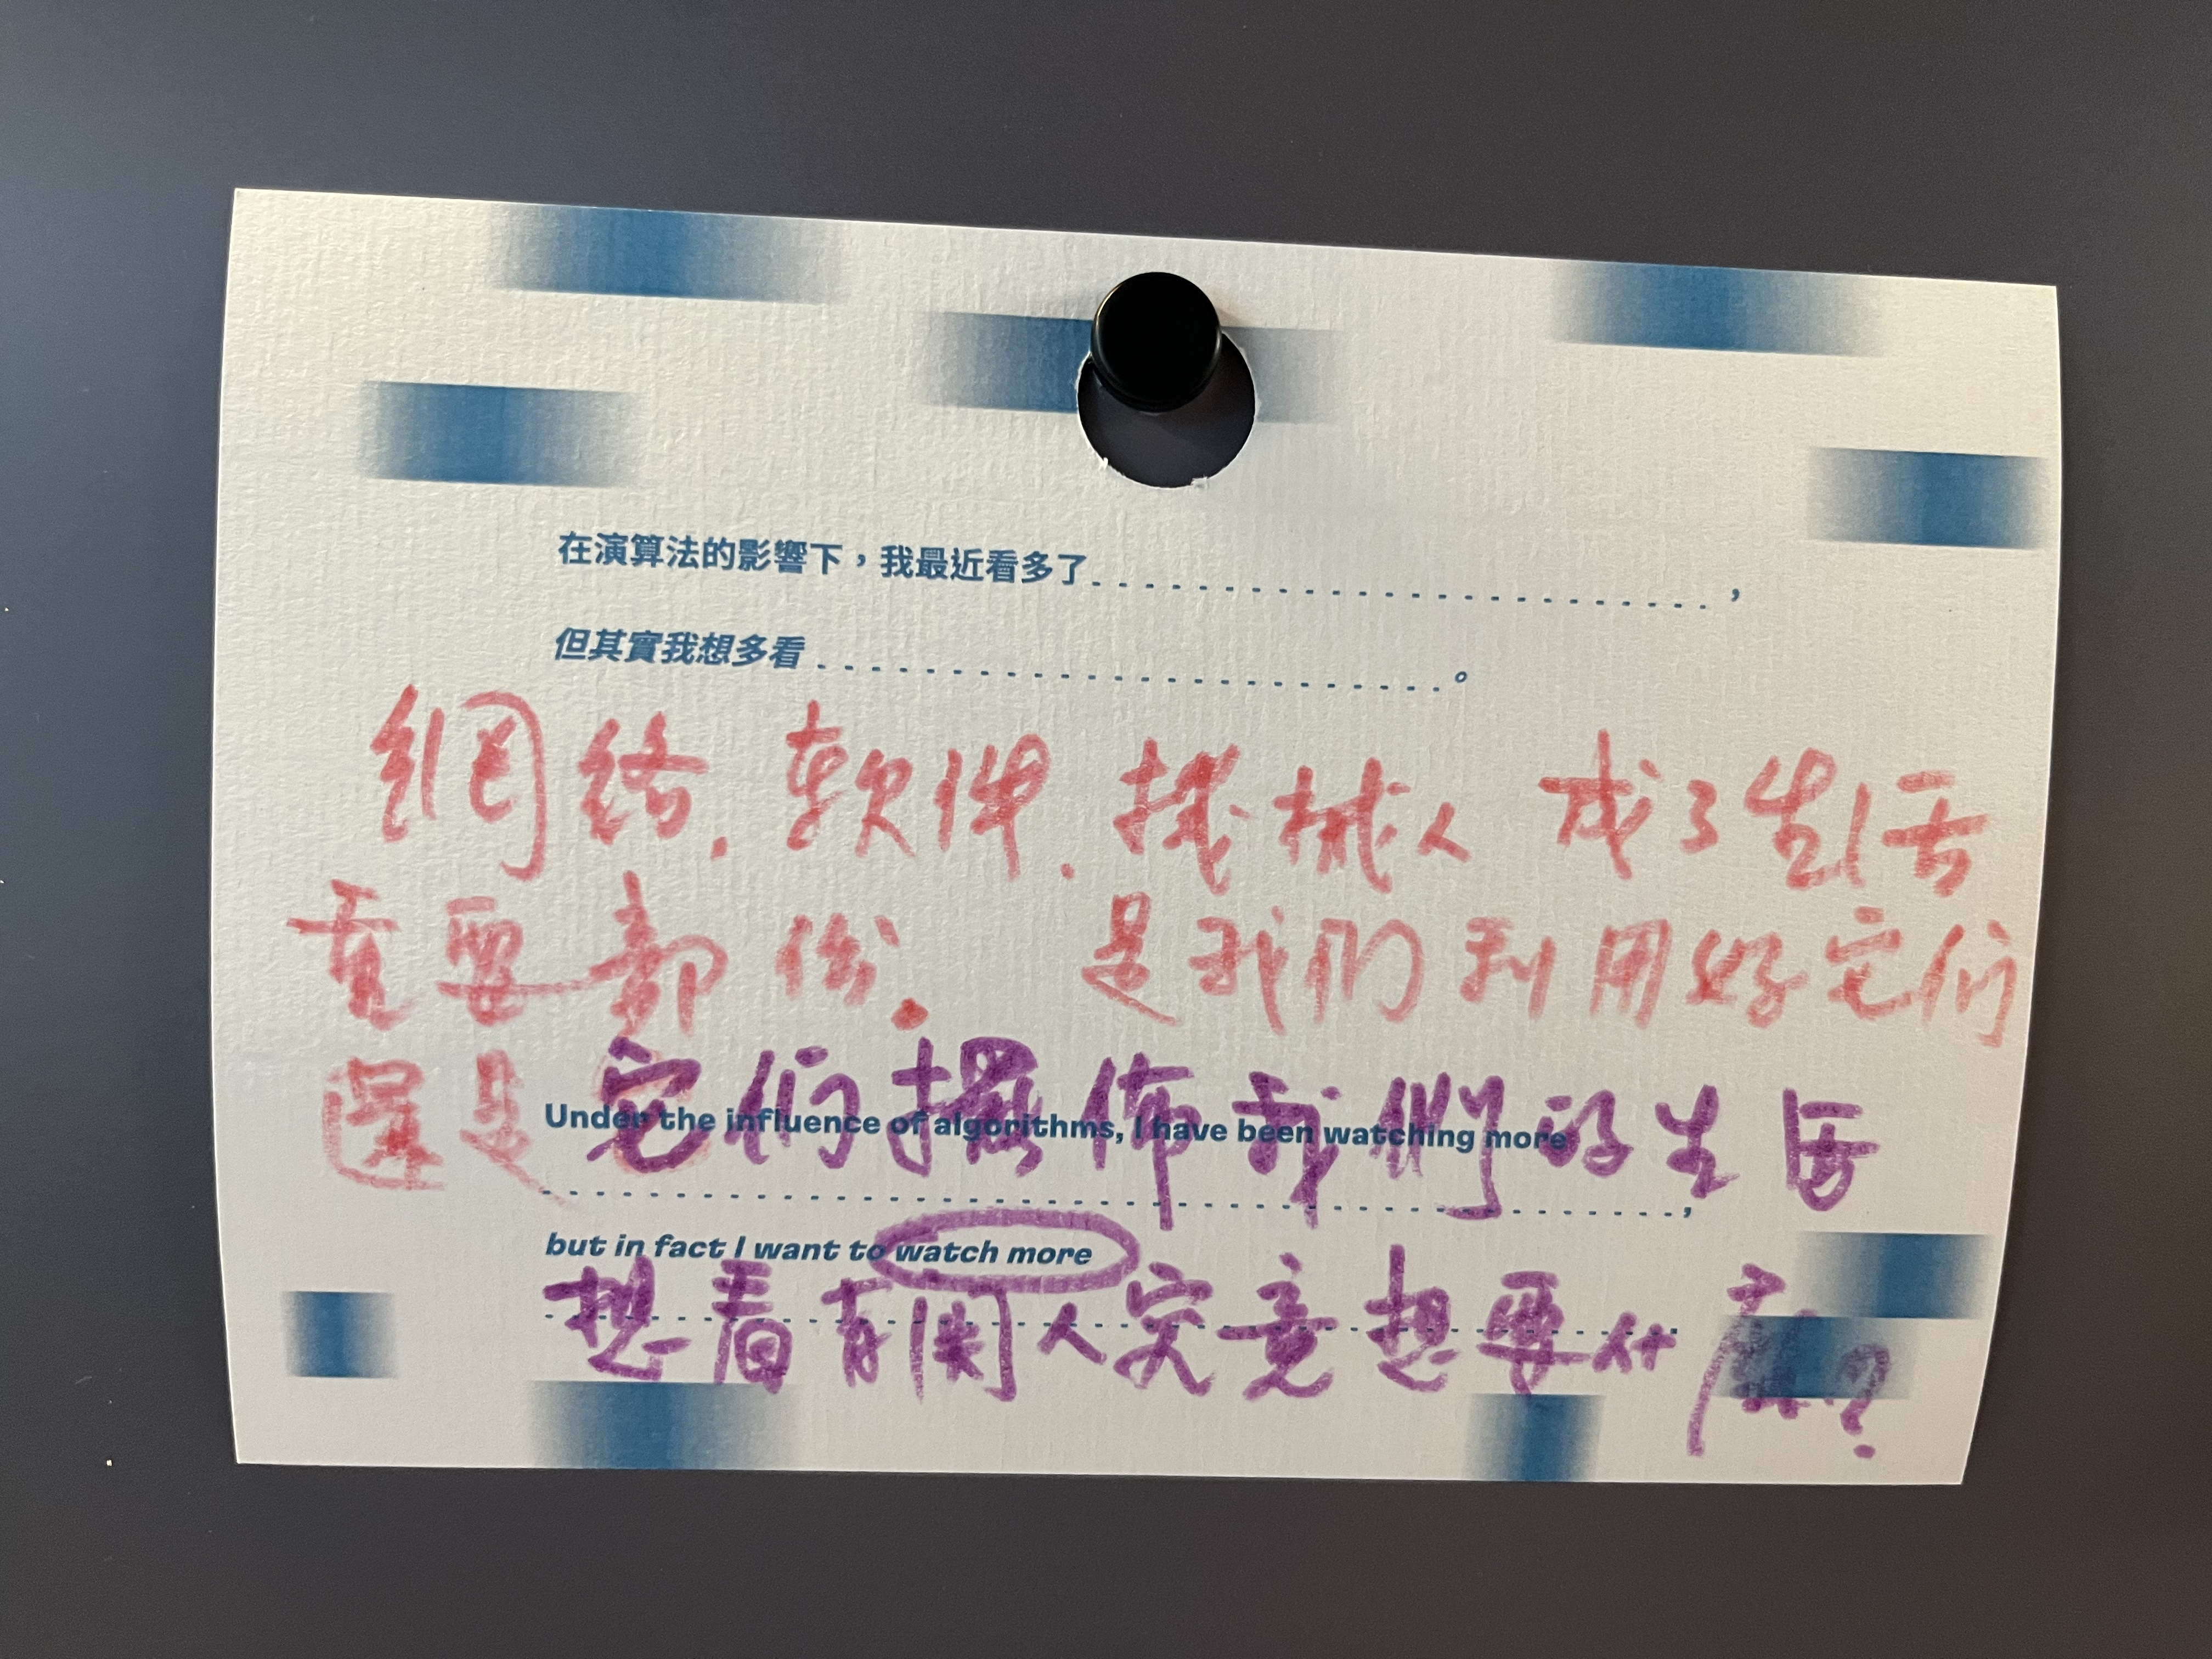 在演算法的影響下，我最近看多了........................，
但其實我想多看........................。
網絡.軟件.機械人 成了生活
重要部份. 是我们利用好它们
還是它们擺佈我們的生活
Under the influence of algorithms, I have been watching more
........................,
but in fact I want to watch more
想看有関人究竟想要什麼?